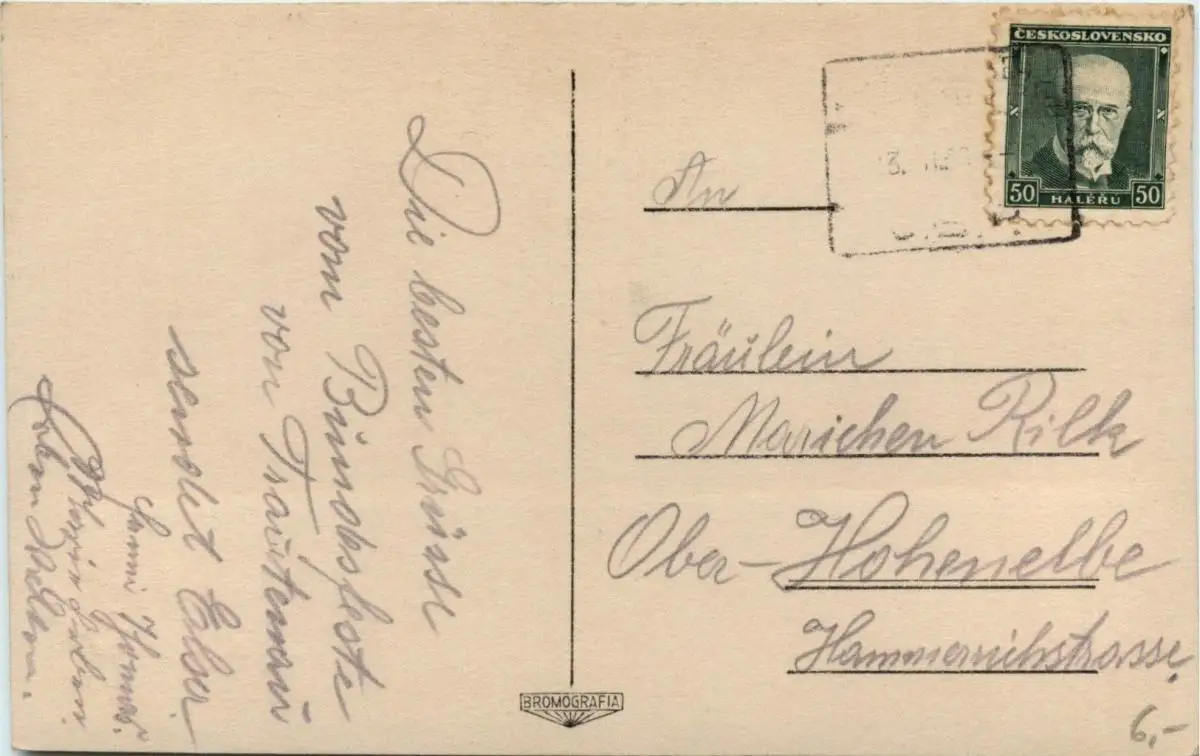 Die besten Grüsse
vom Bundesfeste
von Trautenau
sendet Elser.
BROMOGRAFIA
ČESKOSLOVENSKO
50 HALÉRŮ 50
An
Fräulein
Marichen Rilk
Ober-Hohenelbe
Hammerichstrasse.
6,-